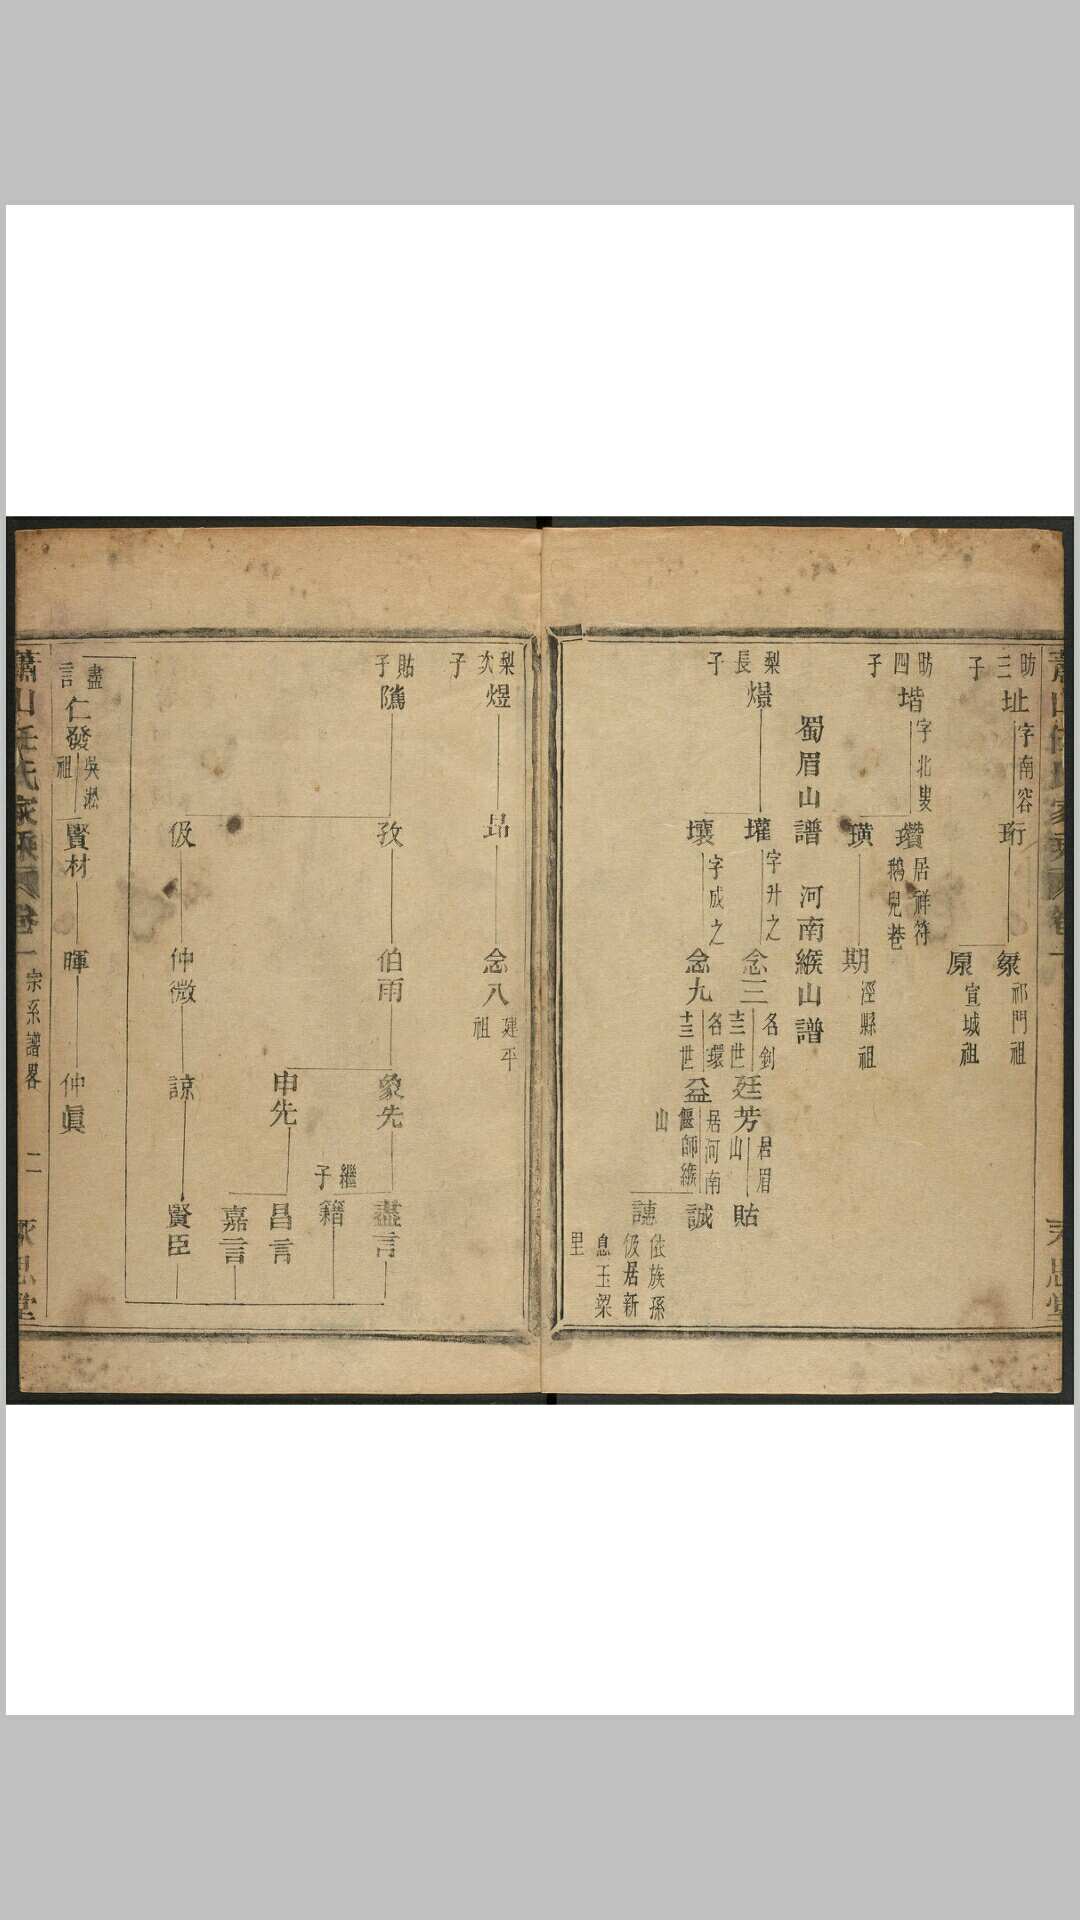 蕭山任氏家乘 卷一
永思堂
昉三子
址 字南容
珩
衆 祁門祖
原 宣城祖
昉四子
堦 字北叟
瓚 居祥符鵝兒巷
璜
期 涇縣祖
蜀眉山譜 河南緱山譜
梨長子
燝
壦 字升之
念三 名釗 十三世
廷芳 居眉山
貼
壤 字成之
念九 名環 十三世
益 居河南偃師緱山
誠
譓 依族孫伋居新息玉梁里
梨次子
煜
昂
念八 建平祖
貼子
隲
孜
伯雨
象先
盡言
籍 繼子
申先
昌言
嘉言
伋
仲微
諒
賢臣
盡言
仁發 吳淞祖
賢材
暉
仲眞
蕭山任氏家乘 卷一 宗系譜畧 二 永思堂